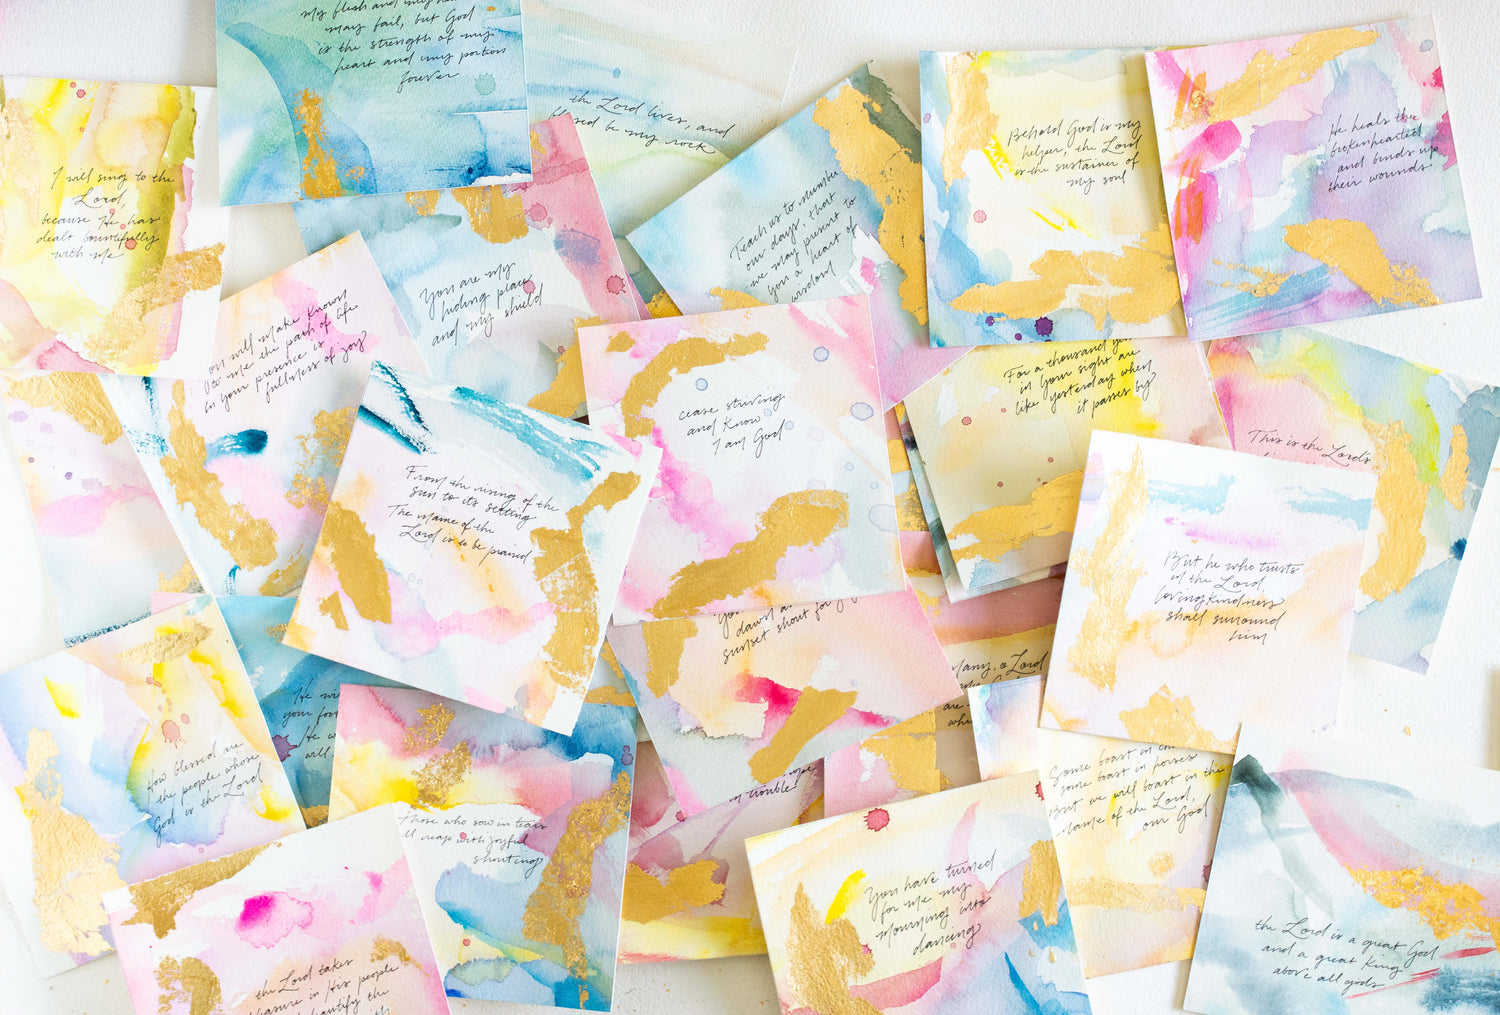 my flesh and my
may fail, but God
is the strength of my
heart and my portion
forever
the Lord lives, and
be my rock
I will sing to the
Lord,
because He has
dealt bountifully
with me
You are my
hiding place
and my shield
Teach us to number
our days, that
we may present to
You a heart of
wisdom
Behold God is my
helper, the Lord
is the sustainer of
my soul
He heals the
brokenhearted
and binds up
their wounds
will make known
to me the path of life
in Your presence is
fullness of joy
cease striving
and know
I am God
For a thousand
in Your sight are
like yesterday when
it passes by
This is the Lord's
From the rising of the
sun to its setting
The name of the
Lord is to be praised
But he who trusts
in the Lord,
lovingkindness
shall surround
him
dawn
sunset shout for
many, O Lord
are
He
your foot
He
will
How blessed are
the people whose
God is the Lord
Those who sow in tears
reap with joyful
shouting
trouble
Some boast in
some boast in horses
But we will boast in the
name of the Lord,
our God
You have turned
for me my
mourning into
dancing
the Lord is a great God
and a great King
above all gods
the Lord takes
in His people
the